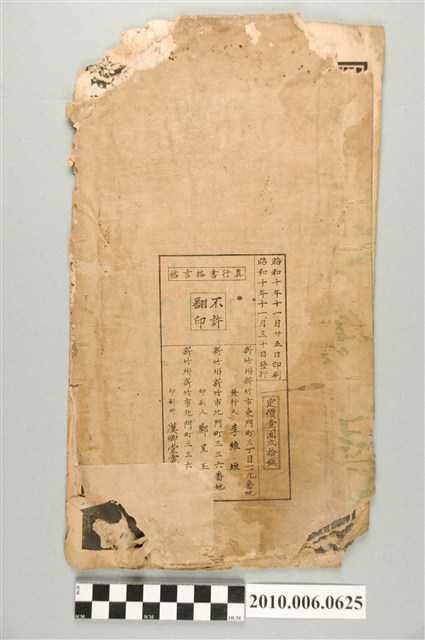 昭和十年十一月廿五日印刷
昭和十年十一月三十日發行
定價壹圓六拾錢
真行書格言帖
不許
翻印
新竹州新竹市東門町三丁目一九番地
發行人 李維垣
新竹州新竹市北門町三三六番地
印刷人 鄭呈玉
新竹州新竹市北門町三三六
印刷所 漢卿堂
2010.006.0625